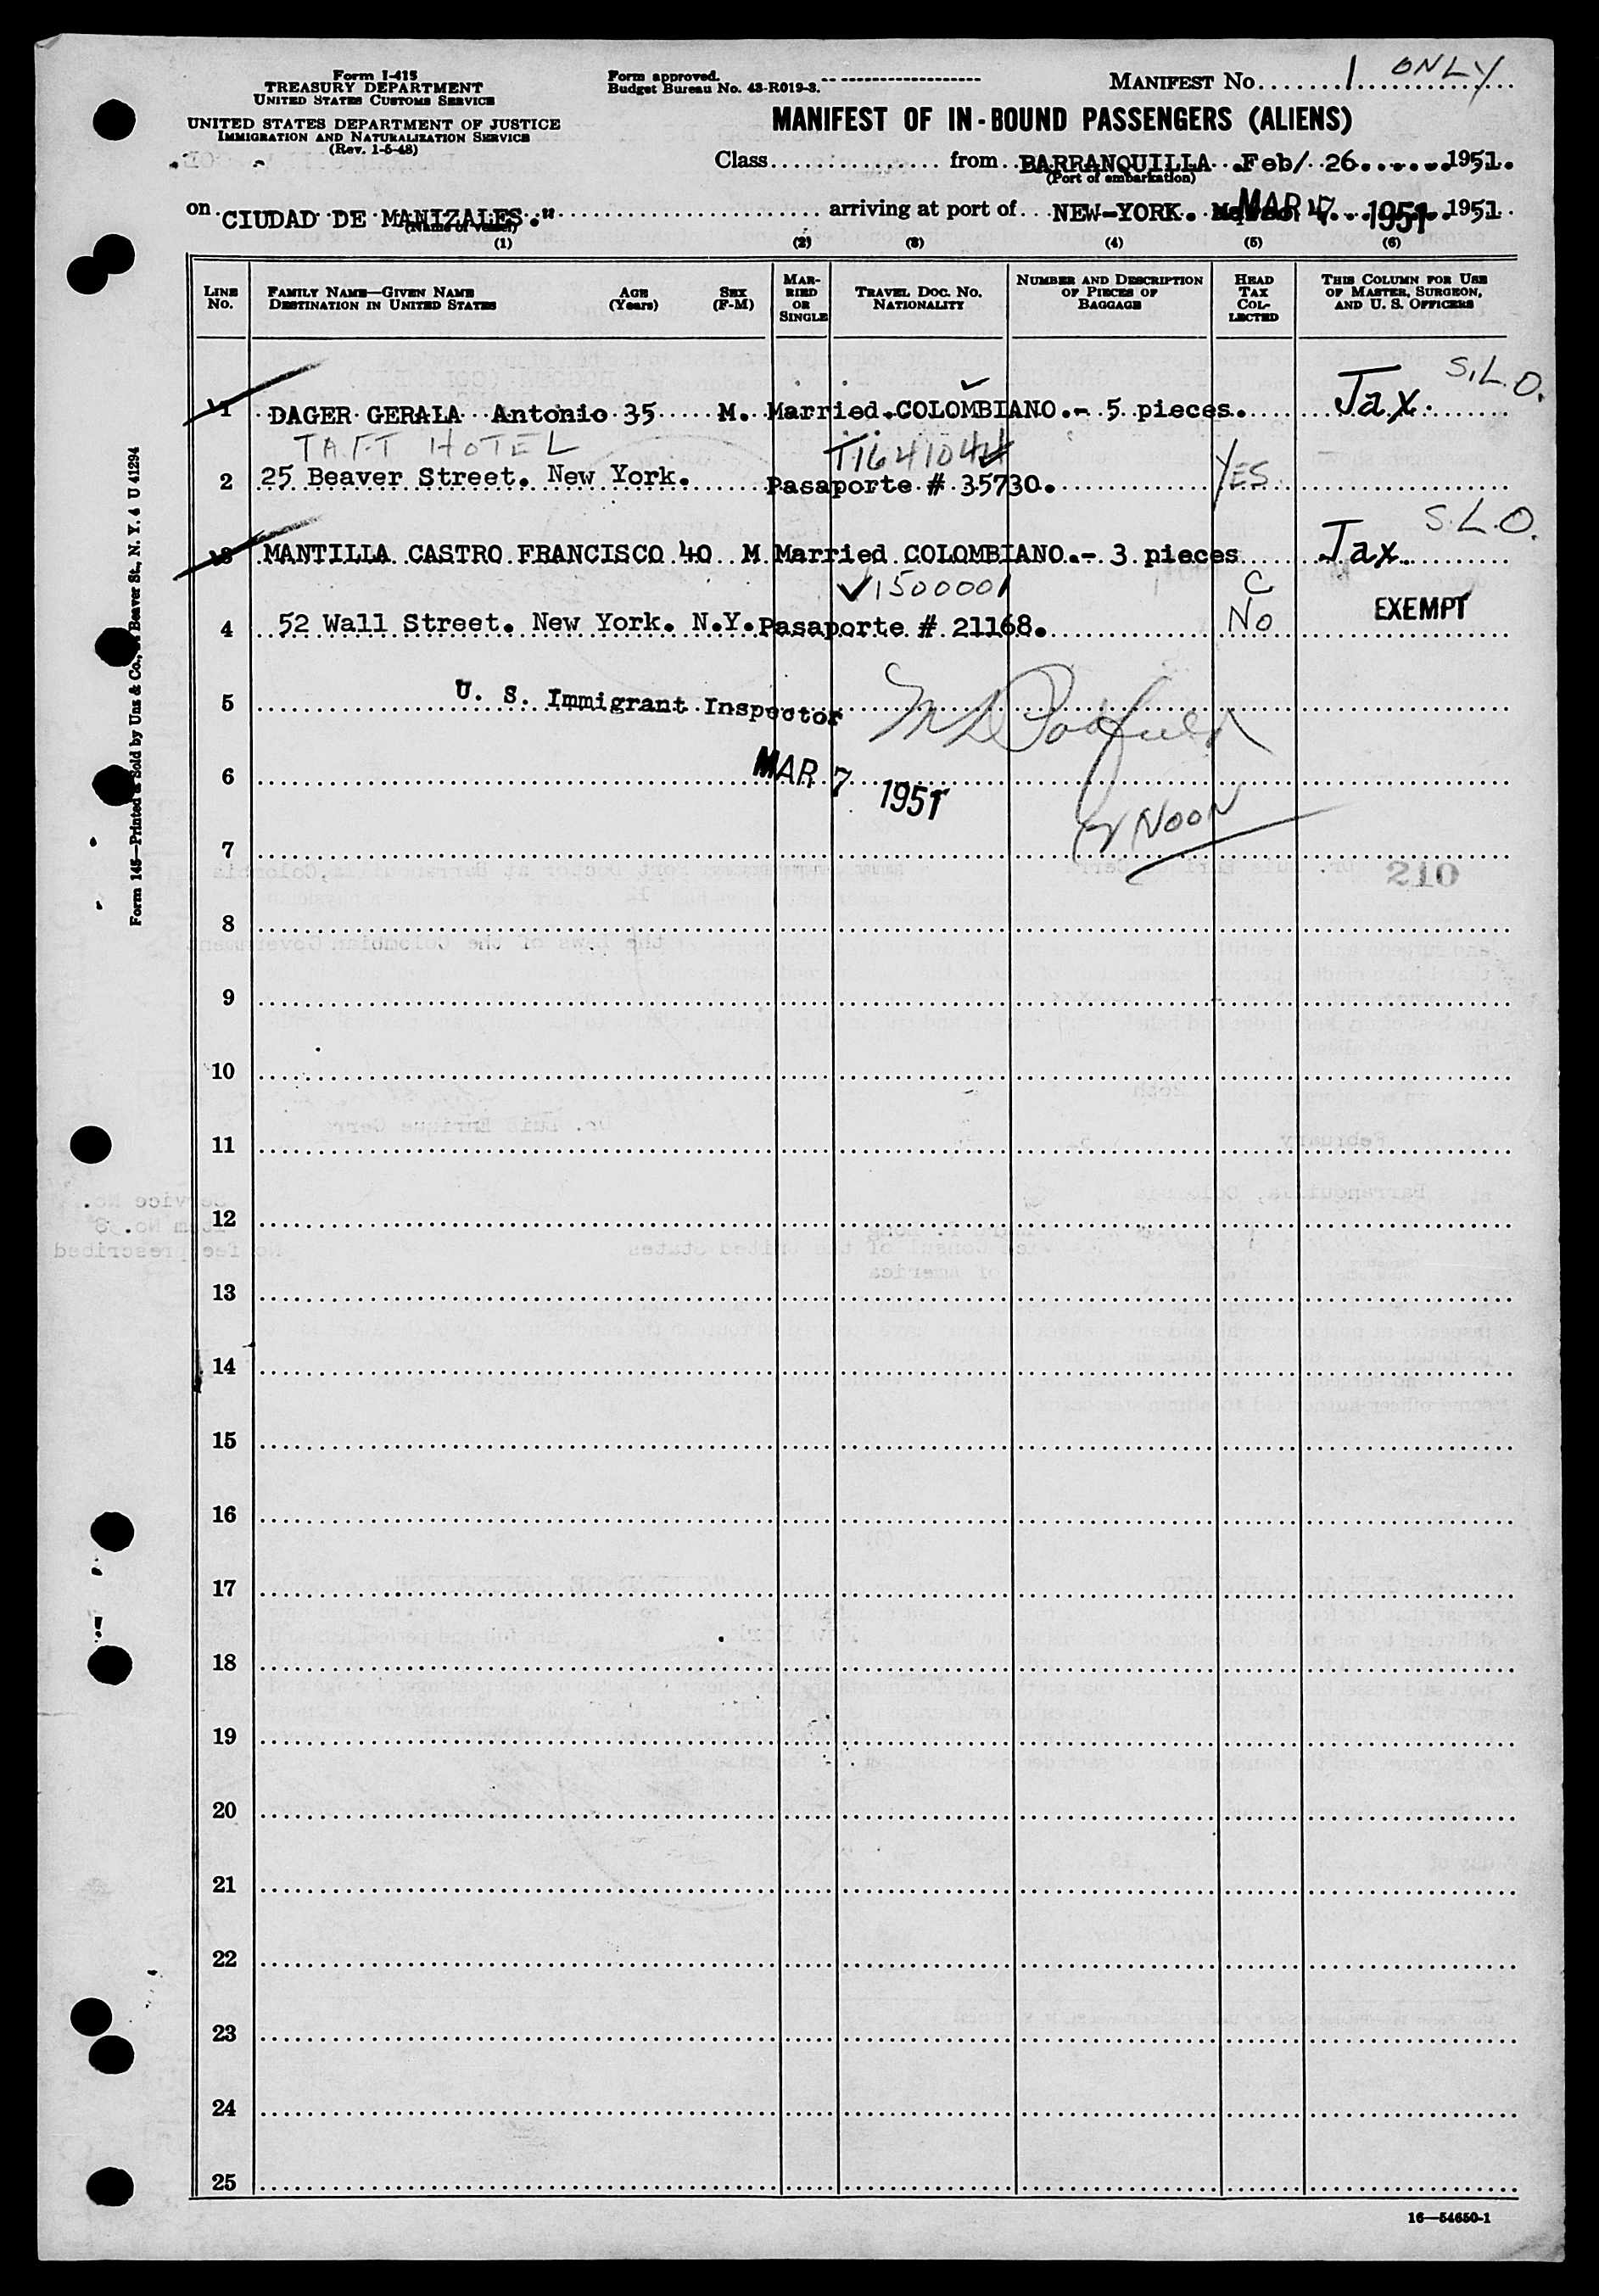 Form I-415
TREASURY DEPARTMENT
UNITED STATES CUSTOMS SERVICE
UNITED STATES DEPARTMENT OF JUSTICE
IMMIGRATION AND NATURALIZATION SERVICE
(Rev. 1-5-48)
Form approved.
Budget Bureau No. 43-R019-3.
MANIFEST No. 1 ONLY
MANIFEST OF IN-BOUND PASSENGERS (ALIENS)
Class from BARRANQUILLA Feb/ 26 1951.
(Port of embarkation)
on CIUDAD DE MANIZALES." arriving at port of NEW-YORK. MAR 7 1951 1951
(Name of vessel)
(1) (2) (3) (4) (5) (6)
LINE No. FAMILY NAME—GIVEN NAME DESTINATION IN UNITED STATES AGE (Years) SEX (F-M) MARRIED OR SINGLE TRAVEL DOC. NO. NATIONALITY NUMBER AND DESCRIPTION OF PIECES OF BAGGAGE HEAD TAX COLLECTED THIS COLUMN FOR USE OF MASTER, SURGEON, AND U. S. OFFICERS
S.L.O.
1 DAGER GERALA Antonio 35 M. Married. COLOMBIANO.- 5 pieces. Tax.
TAFT HOTEL T1641044
2 25 Beaver Street. New York. Pasaporte # 35730. YES
S.L.O.
3 MANTILLA CASTRO FRANCISCO 40 M Married COLOMBIANO.- 3 pieces Tax.
V1500001 C
4 52 Wall Street. New York. N.Y. Pasaporte # 21168. No EXEMPT
5 U. S. Immigrant Inspector
6 MAR 7 1951
NOON
7
210
8
9
10
11
12
13
14
15
16
17
18
19
20
21
22
23
24
25
16—54650-1
Form 145—Printed & Sold by Unz & Co., Beaver St., N. Y. 4 U 41294